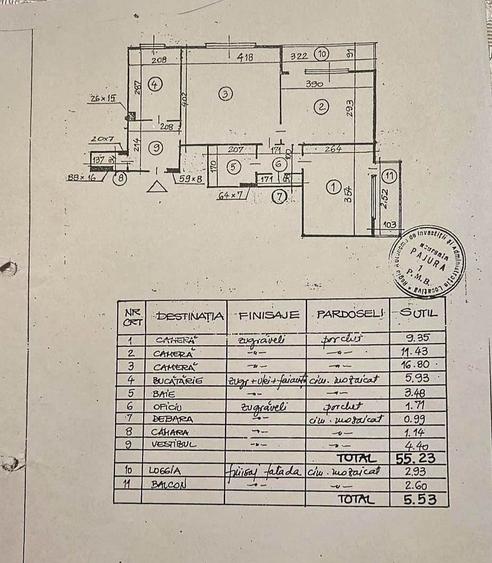 208
418
322
10
91
26×15
287
4
402
3
390
2
293
208
20×7
214
9
207
171
264
137
8
88×16
59×8
170
5
6
64×7
171
7
1
354
11
2.52
103
Regia Autonomă de Investiții și Administrație Locativă
sucursala
PAJURA
1
P.M.B.
NR CRT DESTINAȚIA FINISAJE PARDOSELI SUTIL
1 CAMERĂ zugrăveli parchet 9.35
2 CAMERĂ -〃- -〃- 11.43
3 CAMERĂ -〃- -〃- 16.80
4 BUCĂTĂRIE zugr+ulei+faianță cim. mozaicat 5.93
5 BAIE -〃- -〃- 3.48
6 OFICIU zugrăveli parchet 1.71
7 DEBARA -〃- cim. mozaicat 0.99
8 CĂMARA -〃- -〃- 1.14
9 VESTIBUL -〃- -〃- 4.40
TOTAL 55.23
10 LOGGIA finisaj fațada cim. mozaicat 2.93
11 BALCON -〃- -〃- 2.60
TOTAL 5.53